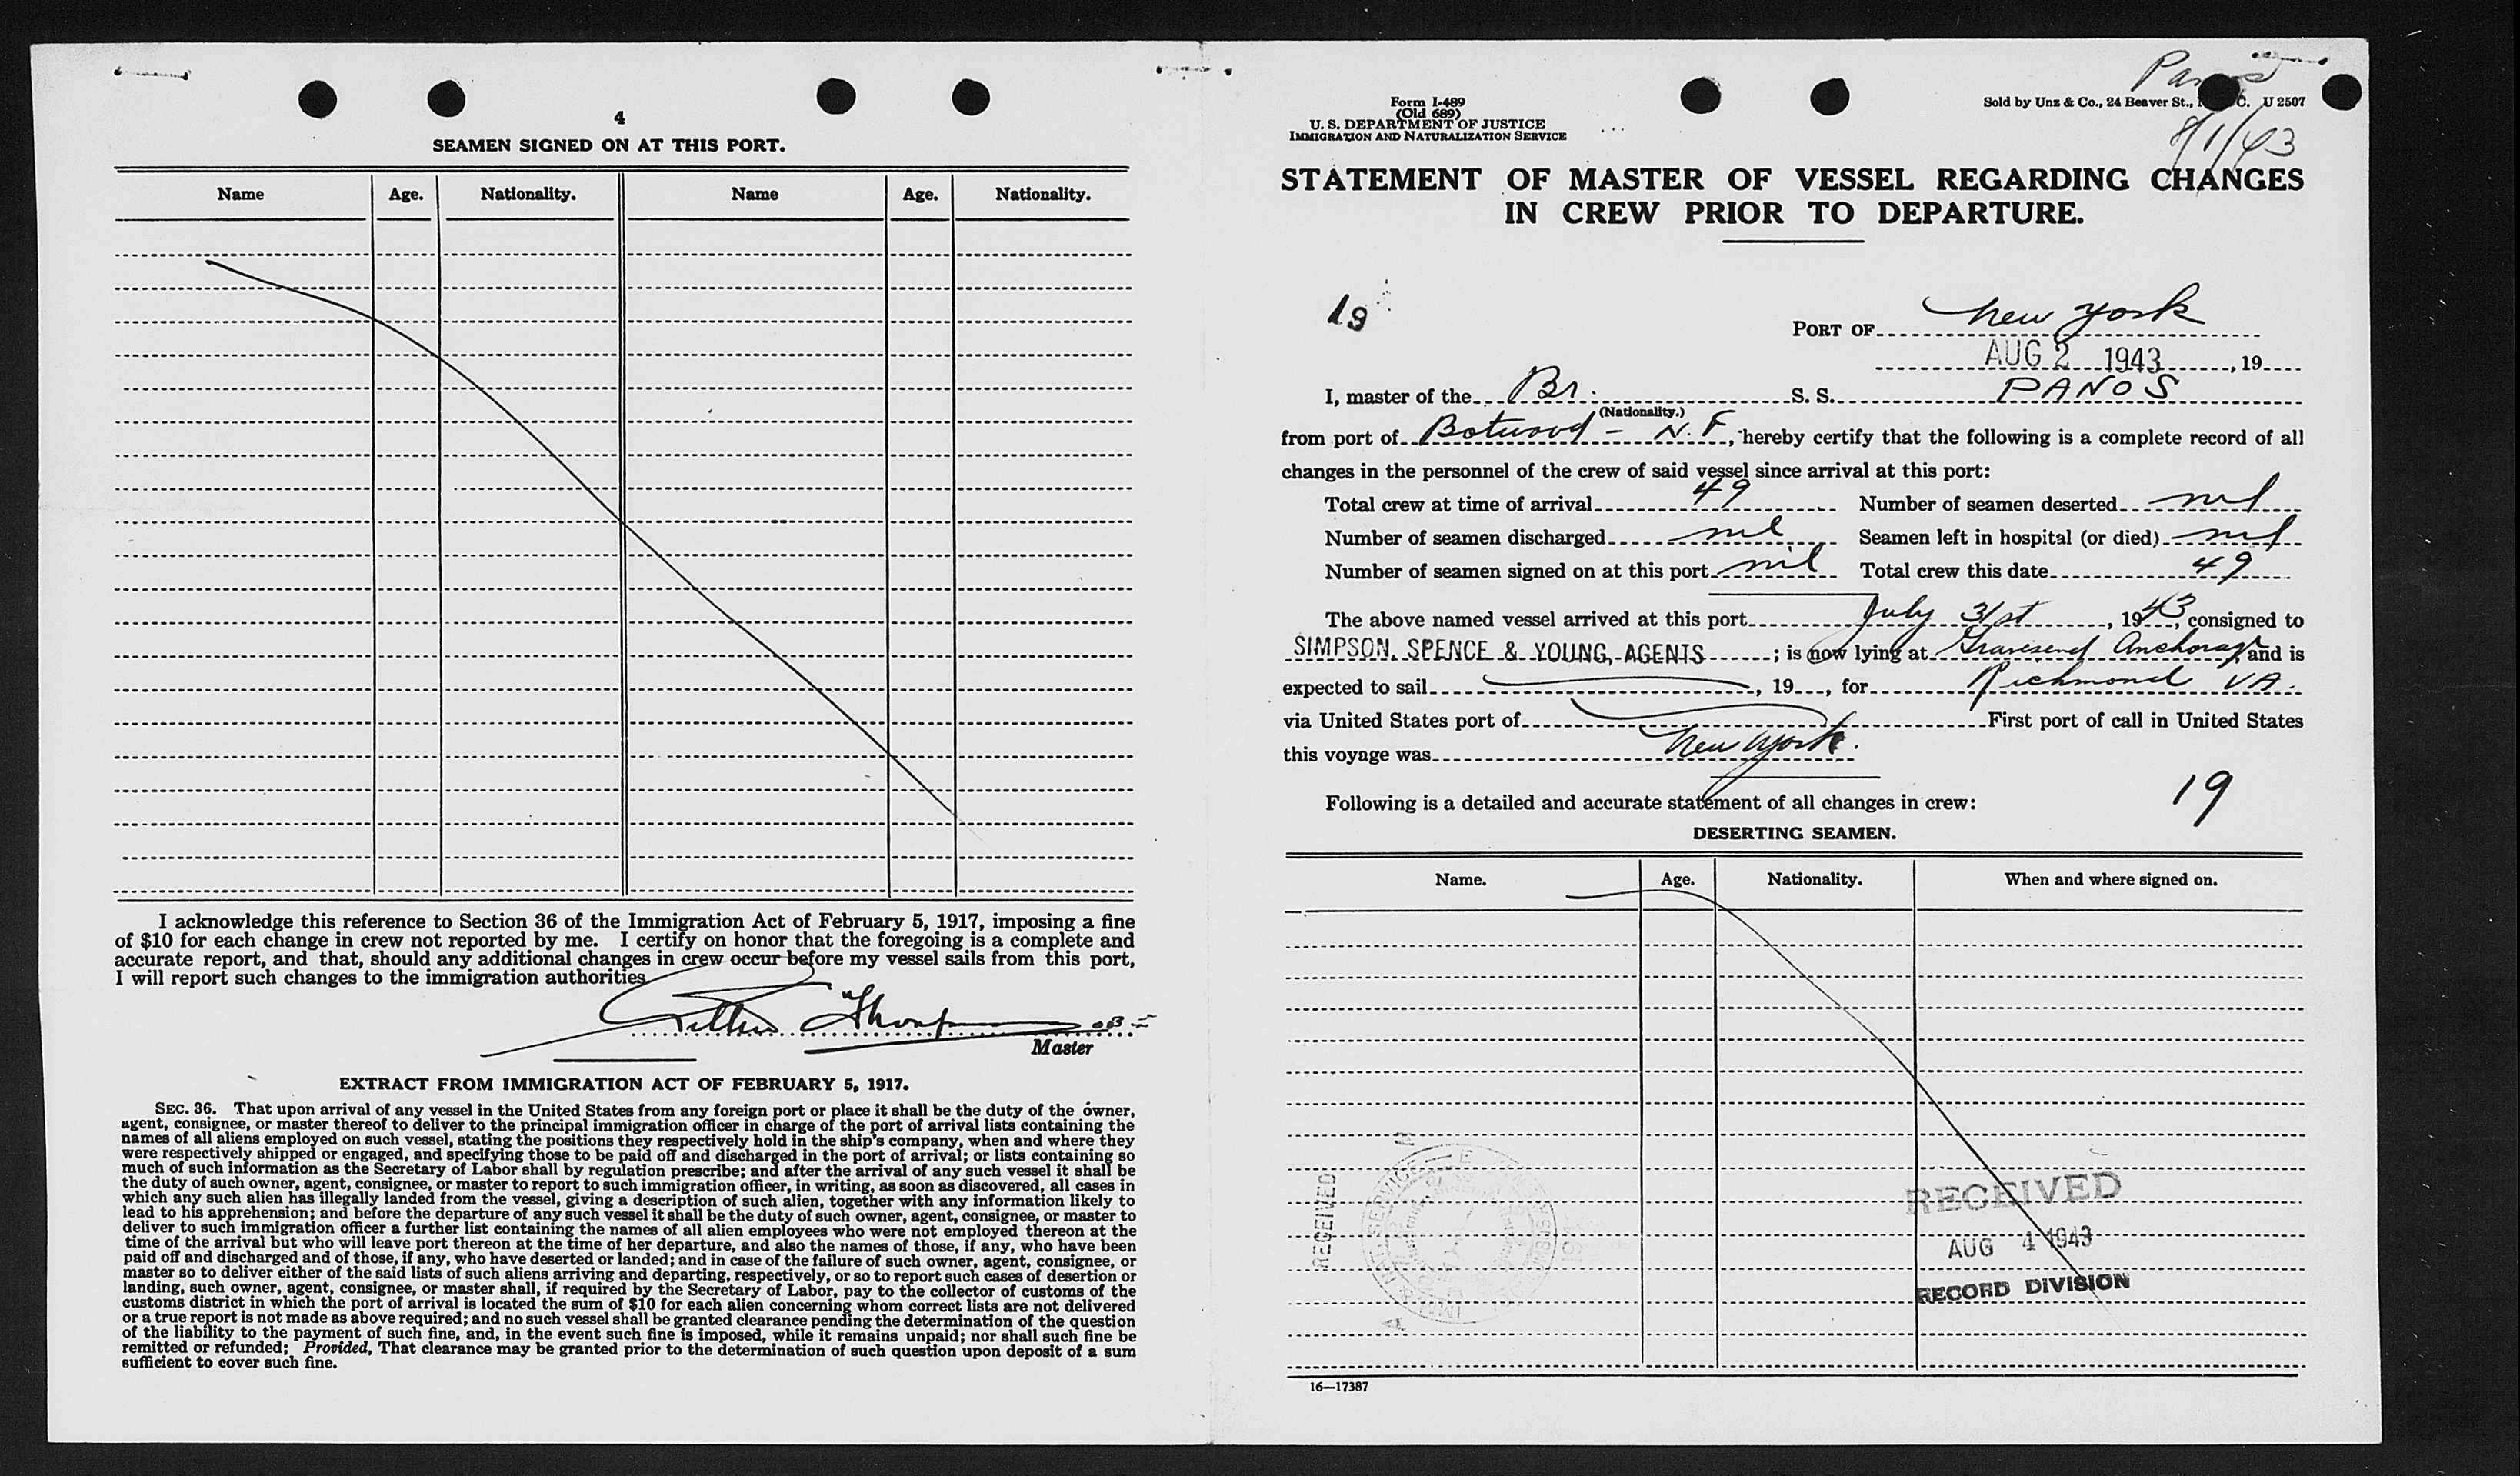 4
SEAMEN SIGNED ON AT THIS PORT.
Name Age. Nationality. Name Age. Nationality.
I acknowledge this reference to Section 36 of the Immigration Act of February 5, 1917, imposing a fine
of $10 for each change in crew not reported by me. I certify on honor that the foregoing is a complete and
accurate report, and that, should any additional changes in crew occur before my vessel sails from this port,
I will report such changes to the immigration authorities
Master
EXTRACT FROM IMMIGRATION ACT OF FEBRUARY 5, 1917.
SEC. 36. That upon arrival of any vessel in the United States from any foreign port or place it shall be the duty of the owner,
agent, consignee, or master thereof to deliver to the principal immigration officer in charge of the port of arrival lists containing the
names of all aliens employed on such vessel, stating the positions they respectively hold in the ship's company, when and where they
were respectively shipped or engaged, and specifying those to be paid off and discharged in the port of arrival; or lists containing so
much of such information as the Secretary of Labor shall by regulation prescribe; and after the arrival of any such vessel it shall be
the duty of such owner, agent, consignee, or master to report to such immigration officer, in writing, as soon as discovered, all cases in
which any such alien has illegally landed from the vessel, giving a description of such alien, together with any information likely to
lead to his apprehension; and before the departure of any such vessel it shall be the duty of such owner, agent, consignee, or master to
deliver to such immigration officer a further list containing the names of all alien employees who were not employed thereon at the
time of the arrival but who will leave port thereon at the time of her departure, and also the names of those, if any, who have been
paid off and discharged and of those, if any, who have deserted or landed; and in case of the failure of such owner, agent, consignee, or
master so to deliver either of the said lists of such aliens arriving and departing, respectively, or so to report such cases of desertion or
landing, such owner, agent, consignee, or master shall, if required by the Secretary of Labor, pay to the collector of customs of the
customs district in which the port of arrival is located the sum of $10 for each alien concerning whom correct lists are not delivered
or a true report is not made as above required; and no such vessel shall be granted clearance pending the determination of the question
of the liability to the payment of such fine, and, in the event such fine is imposed, while it remains unpaid; nor shall such fine be
remitted or refunded; Provided, That clearance may be granted prior to the determination of such question upon deposit of a sum
sufficient to cover such fine.
Panos
8/1/43
Form I-489
(Old 689)
U. S. DEPARTMENT OF JUSTICE
IMMIGRATION AND NATURALIZATION SERVICE
Sold by Unz & Co., 24 Beaver St., N. Y. C. U 2507
STATEMENT OF MASTER OF VESSEL REGARDING CHANGES
IN CREW PRIOR TO DEPARTURE.
19
PORT OF New York
AUG 2 1943, 19
I, master of the Br. S. S. PANOS
(Nationality.)
from port of Botwood - N. F, hereby certify that the following is a complete record of all
changes in the personnel of the crew of said vessel since arrival at this port:
Total crew at time of arrival 49 Number of seamen deserted nil
Number of seamen discharged nil Seamen left in hospital (or died) nil
Number of seamen signed on at this port nil Total crew this date 49
The above named vessel arrived at this port July 31st, 1943, consigned to
SIMPSON, SPENCE & YOUNG, AGENTS; is now lying at Gravesend Anchorage, and is
expected to sail, 19, for Richmond VA.
via United States port of First port of call in United States
this voyage was New York.
Following is a detailed and accurate statement of all changes in crew: 19
DESERTING SEAMEN.
Name. Age. Nationality. When and where signed on.
RECEIVED
RECEIVED
AUG 4 1943
RECORD DIVISION
16—17387